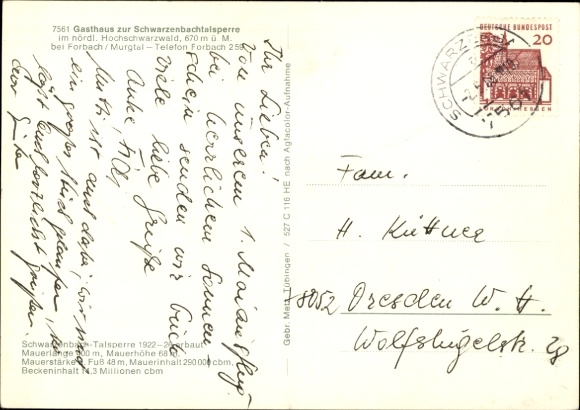 7561 Gasthaus zur Schwarzenbachtalsperre
im nördl. Hochschwarzwald, 670 m ü. M.
bei Forbach / Murgtal – Telefon Forbach 259
Ihr Lieben!
Von unserem 1. Maiausflug
bei herrlichem Sonnen-
schein senden wir Euch
viele liebe Grüße
Anke,
Mutti ist auch dabei, wir sind
ein großes Stück gelaufen,
läßt Euch herzlichst grüßen.
Schwarzenbach-Talsperre 1922–26 erbaut
Mauerlänge 400 m, Mauerhöhe 68 m,
Mauerstärke a. Fuß 48 m, Mauerinhalt 290 000 cbm,
Beckeninhalt 14,3 Millionen cbm
Gebr. Metz, Tübingen / 527 C 116 HE nach Agfacolor-Aufnahme
DEUTSCHE BUNDESPOST
20
SCHWARZENB
Fam.
H. Küttner
X8052 Dresden W. H.
Wolfshügelstr. 28